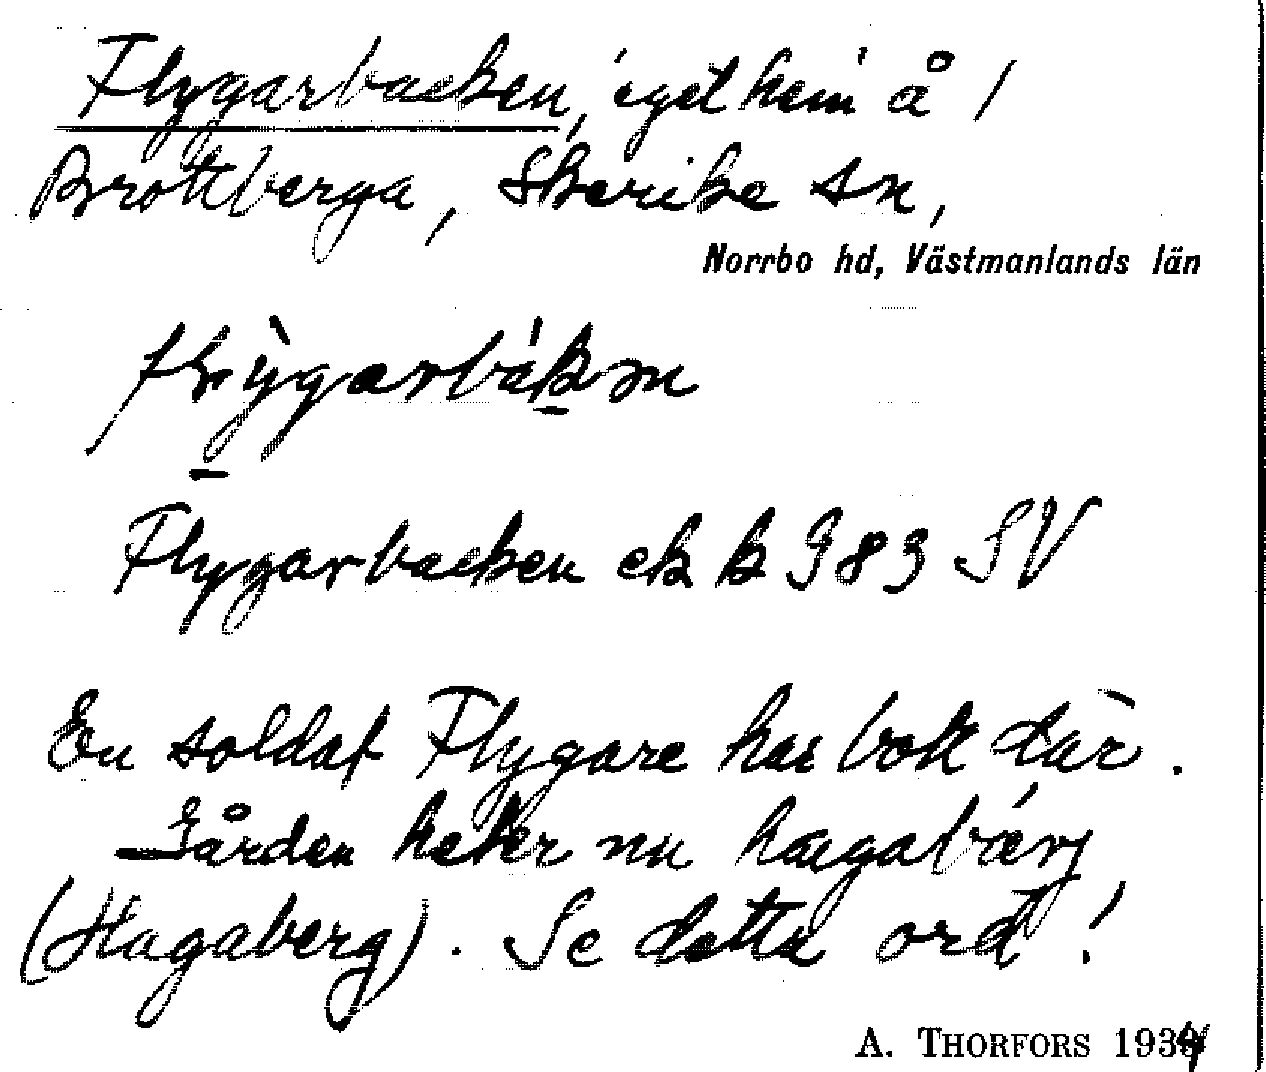 Flygarbacken, eget hem å /
Brottberga, Skerike sn,
Norrbo hd, Västmanlands län
Flygarbacken ek k 983 SV
En soldat Flygare har bott där.
Gården heter nu hagabærj
(Hagaberg). Se detta ord!
A. THORFORS 1934